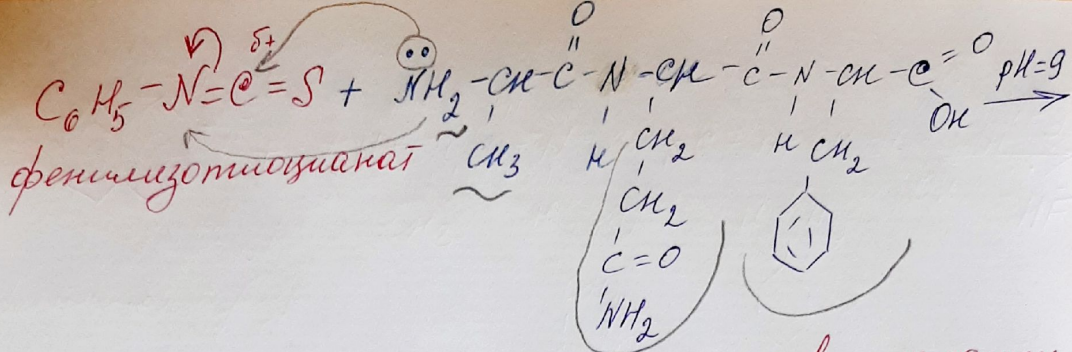 O O
δ+ •• || ||
C6H5-N=C=S + NH2-CH-C-N-CH-C-N-CH-C=O pH=9
OH
фенилизотиоцианат CH3 H CH2 H CH2
CH2
C=O
NH2